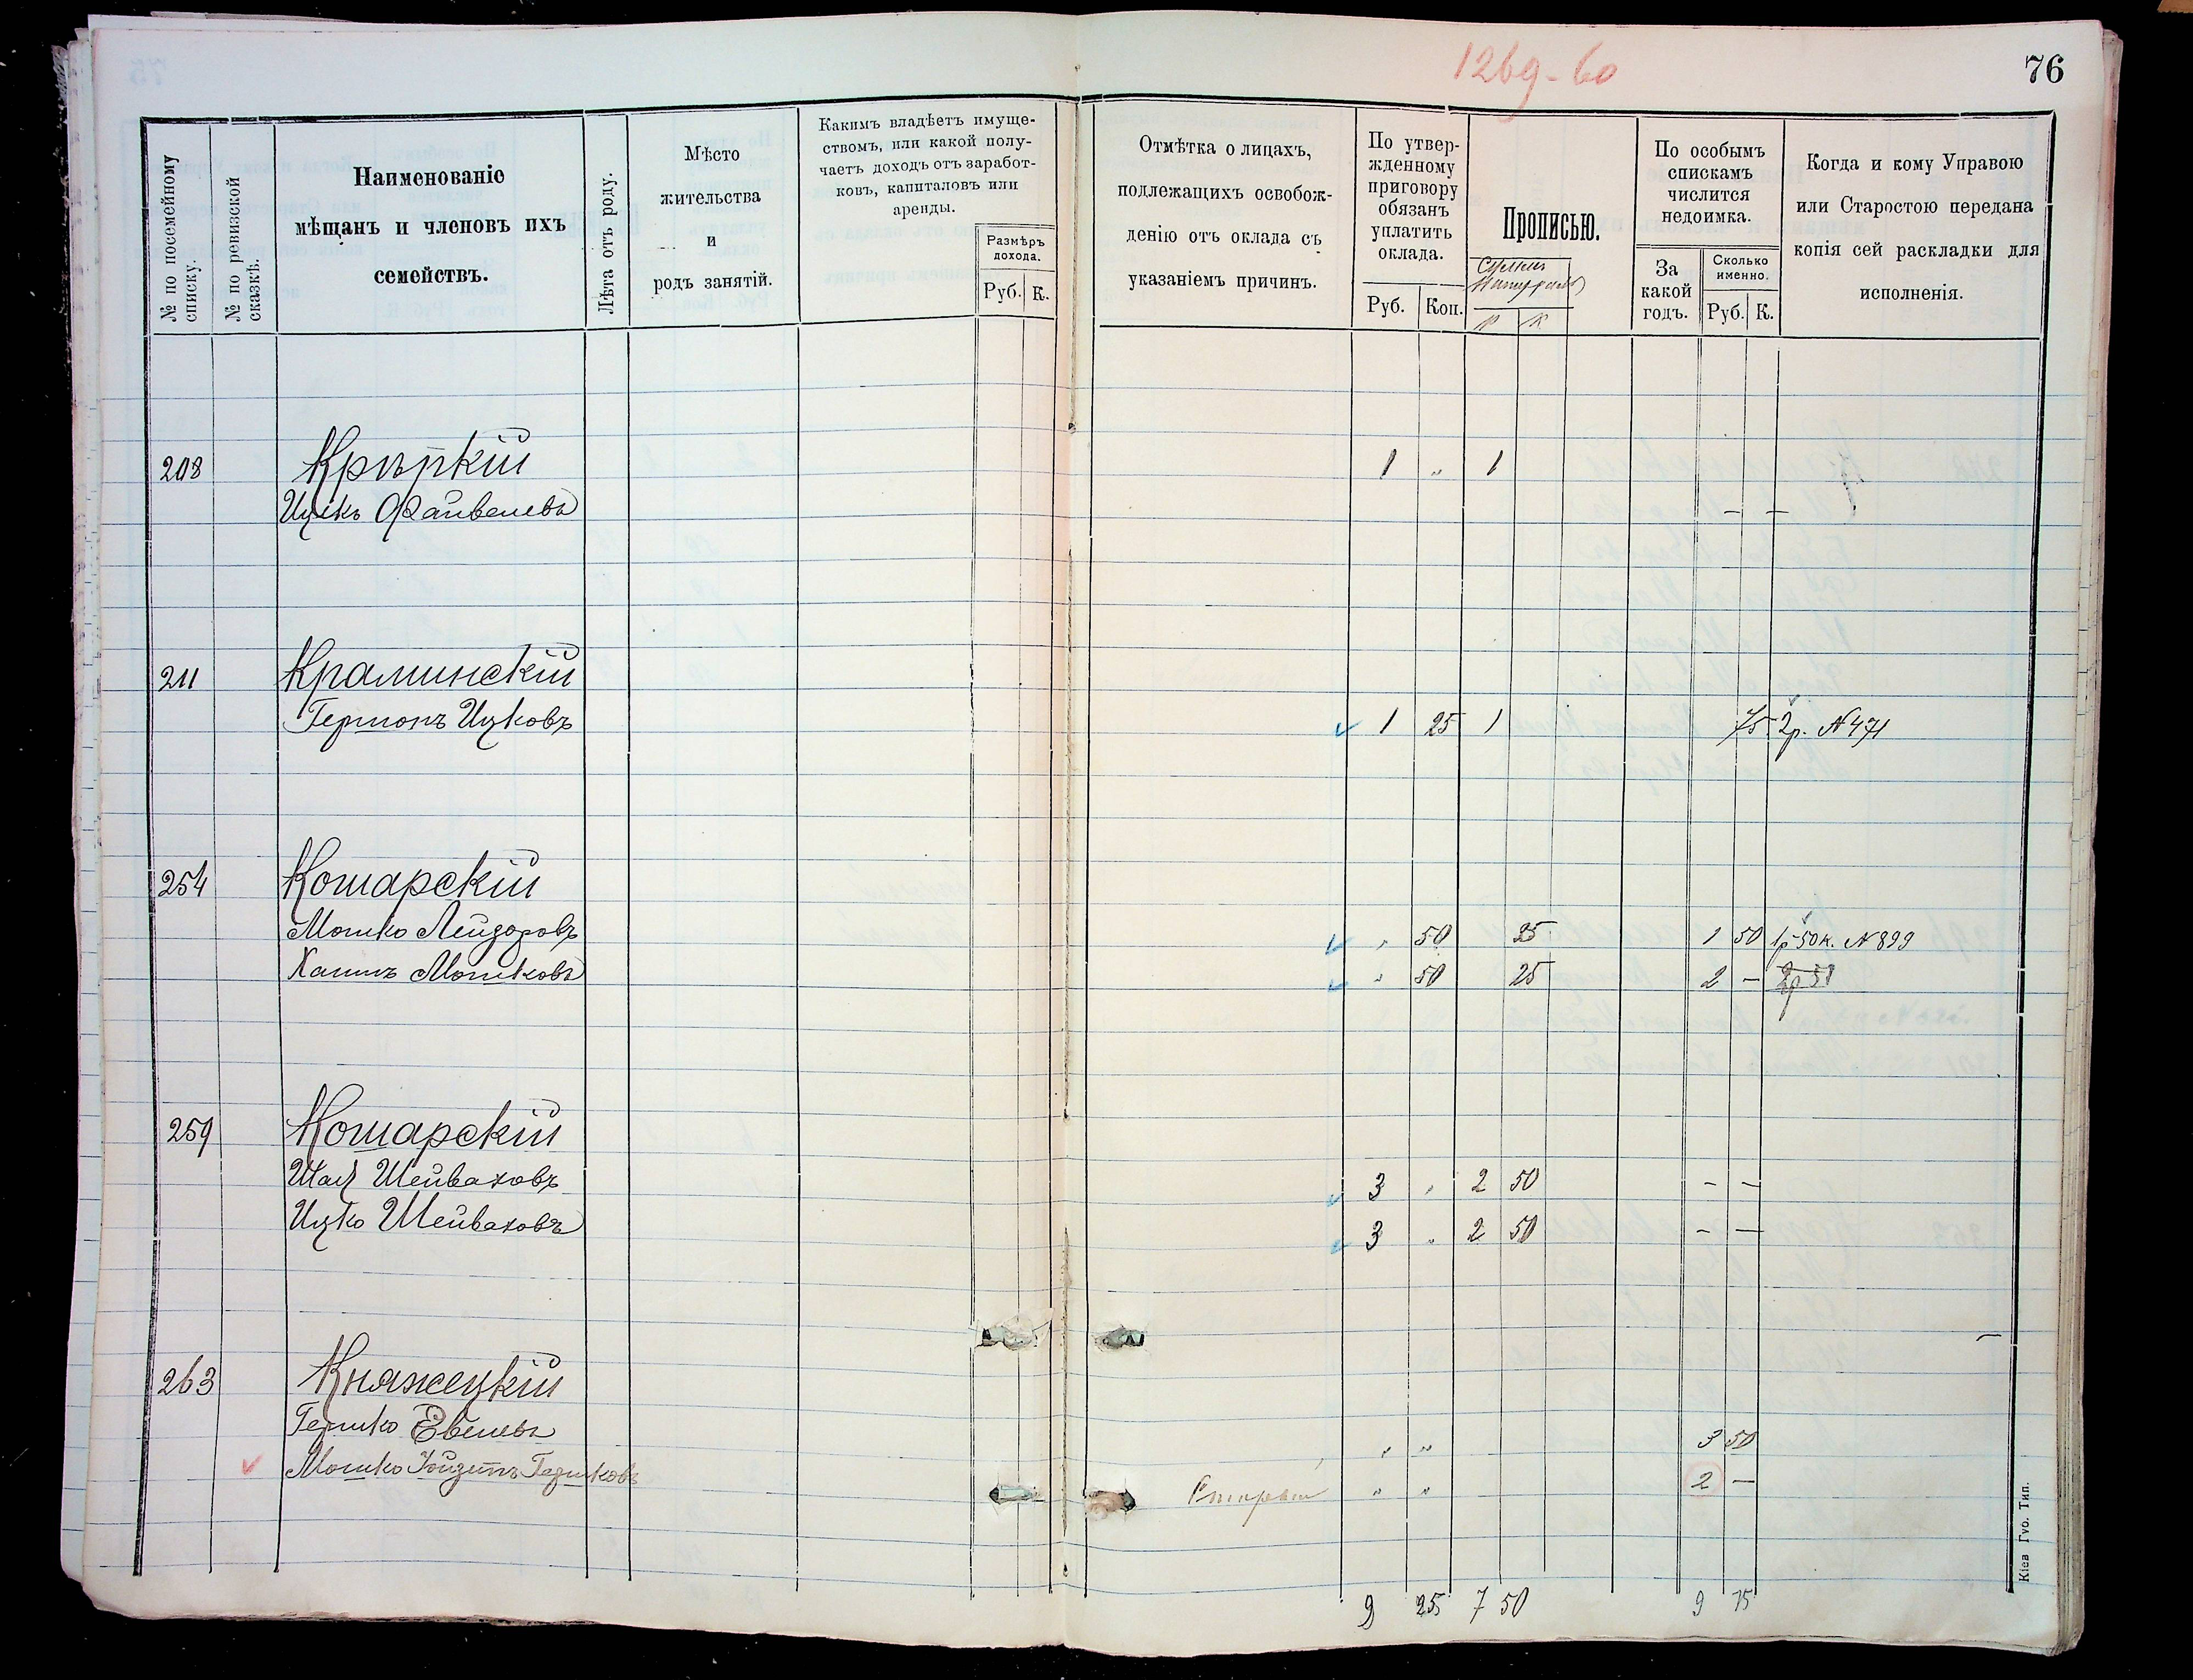 1269-60
76
№ по посемейному списку.
№ по ревизской сказкѣ.
Наименованіе
мѣщанъ и членовъ ихъ
семействъ.
Лѣта отъ роду.
Мѣсто
жительства
и
родъ занятій.
Какимъ владѣетъ имуще-
ствомъ, или какой полу-
чаетъ доходъ отъ заработ-
ковъ, капиталовъ или
аренды.
Размѣръ
дохода.
Руб. К.
Отмѣтка о лицахъ,
подлежащихъ освобож-
денію отъ оклада съ
указаніемъ причинъ.
По утвер-
жденному
приговору
обязанъ
уплатить
оклада.
Руб. Коп.
Прописью.
Р К
По особымъ
спискамъ
числится
недоимка.
За
какой
годъ.
Сколько
именно.
Руб. К.
Когда и кому Управою
или Старостою передана
копія сей раскладки для
исполненія.
208 Крѣпкій 1 " 1
Ицекъ Файвелевъ — —
211 Краминскій
Гершонъ Ицковъ 1 25 1 75 2р. N 471
254 Кошарскій
Мошко Лейзоровъ " 50 25 1 50 1р 50к. N 899
Хаимъ Мошковъ " 50 25 2 — 2р 50
259 Кошарскій
Шая Шейваховъ 3 " 2 50 — —
Ицко Шейваховъ 3 " 2 50 — —
263 Княжецкій
Гершко Евелевъ " " 3 50
Мошко Гершковъ " " 2 —
9 25 7 50 9 75
Кіев Губ. Тип.